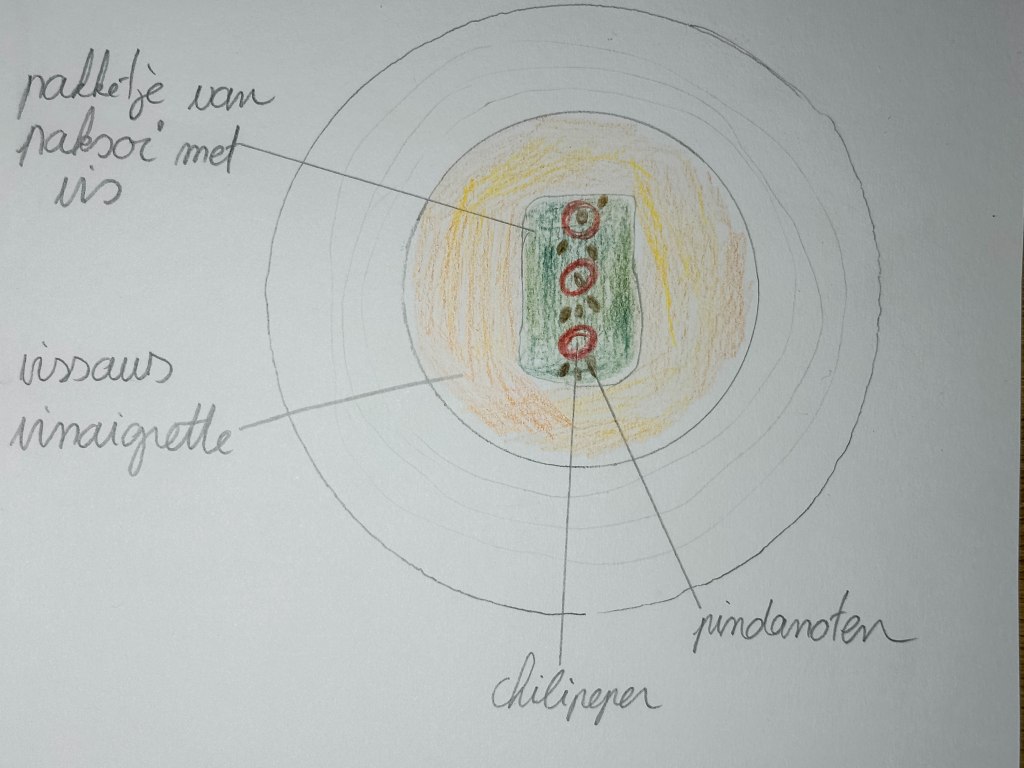 pakketje van
paksoi met
vis
vissaus
vinaigrette
pindanoten
chilipeper